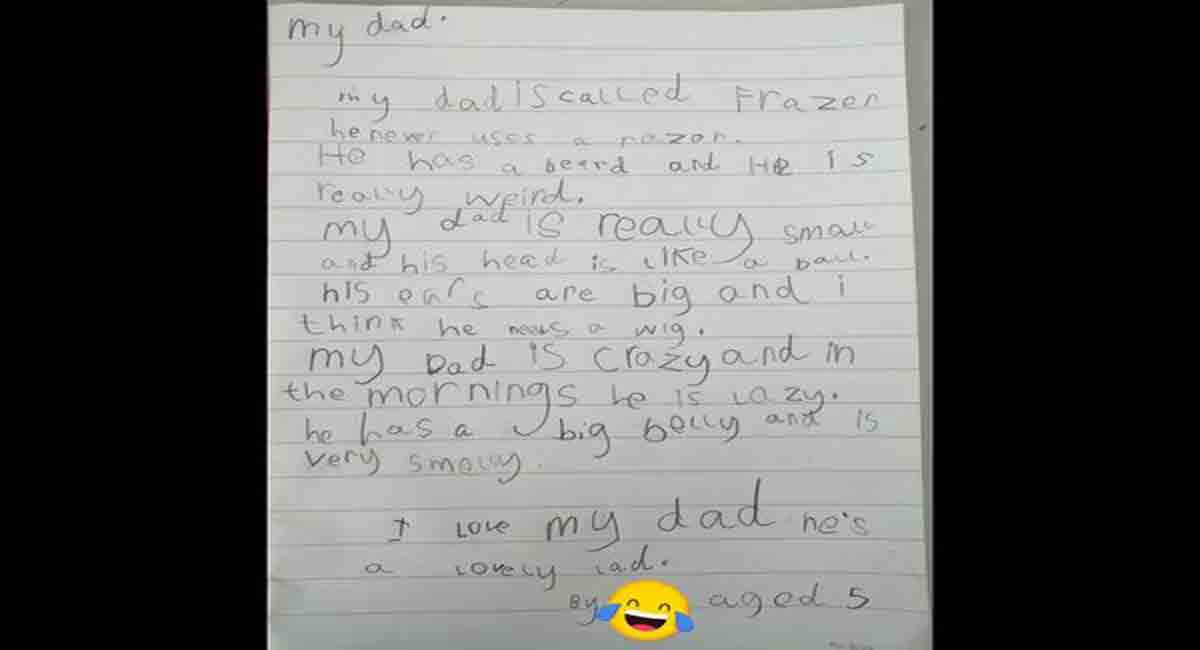 my dad.
my dad is called Frazer
he never uses a razor.
He has a beard and He is
really weird.
my dad is really small
and his head is like a ball.
his ears are big and i
think he needs a wig.
my Dad is crazy and in
the mornings he is lazy.
he has a big belly and is
very smelly.
I love my dad he's
a lovely lad.
By aged 5